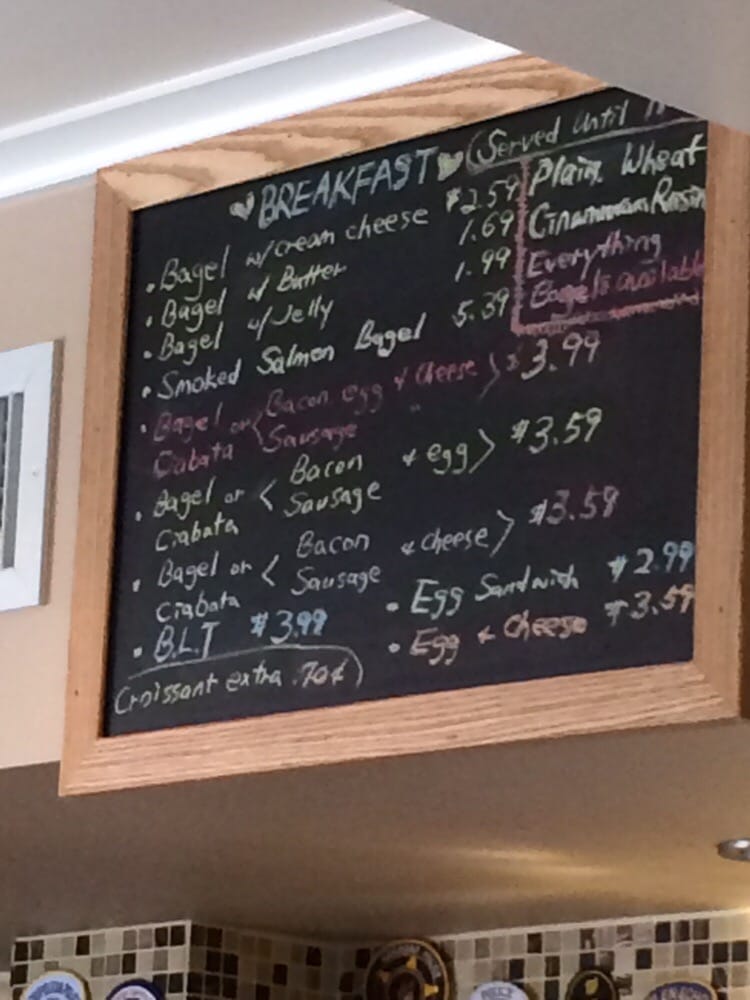 BREAKFAST (Served Until
• Bagel w/cream cheese $2.59
• Bagel w/ Butter 1.69
• Bagel w/Jelly 1.99
• Smoked Salmon Bagel 5.39
Plain, Wheat
Cinammon Rasin
Everything
Bagels available
• Bagel or < Bacon egg & cheese > $3.99
Ciabata Sausage "
• Bagel or < Bacon & egg > $3.59
Ciabata Sausage
• Bagel or < Bacon & cheese > $3.59
Ciabata Sausage
• B.L.T $3.99
• Egg Sandwich $2.99
• Egg & Cheese $3.59
Croissant extra .70¢)